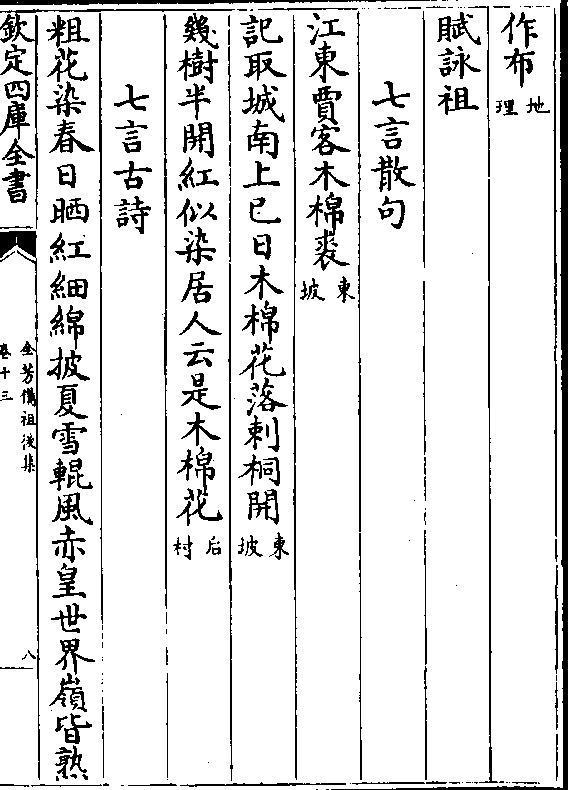 作布地理
賦詠祖
七言散句
江東賈客木棉裘東坡
記取城南上巳日木棉花落刺桐開東坡
幾樹半開紅似染居人云是木棉花后村
七言古詩
粗花染春日晒紅細綿披夏雪輥風赤皇世界嶺皆熟
欽定四庫全書
全芳備祖後集
卷十三
八